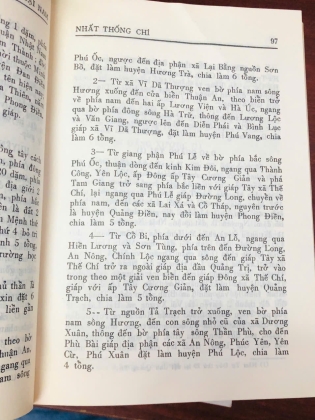 NHẤT THỐNG CHÍ 97
Phú Ốc, ngược đến địa phận xã Lại Bằng nguồn Sơn
Bồ, đặt làm huyện Hương Trà, chia làm 6 tổng.
2— Từ xã Vĩ Dã Thượng ven bờ phía nam sông
Hương xuống đến cửa biển Thuận An, theo biển trở
về phía nam đến hai ấp Lương Viện và Hà Úc, ngang
qua bờ phía đông sông Hà Trữ, thông đến Lương Lộc
và Văn Giang, ngược lên đến Diễn Phái và Bình Lục
giáp xã Vĩ Dã Thượng, đặt làm huyện Phú Vang, chia
làm 6 tổng.
3— Từ giang phận Phú Lễ về bờ phía bắc sông
Phú Ốc, thuận dòng đến kinh Kim Đôi, ngang qua Thành
Công, Yên Lộc, ấp Đông ấp Tây Cương Gián và phá
Tam Giang trở sang phía bắc liền với giáp Tây xã Thế
Chí, lại ngang qua Phú Lễ giáp Đường Long, chuyển về
phía nam, đến các xã Lai Xá và Cổ Tháp, nguyên trước
là huyện Quảng Điền, nay đổi làm huyện Phong Điền,
chia làm 5 tổng.
4— Từ Cổ Bi, phía dưới đến An Lỗ, ngang qua
Hiền Lương và Sơn Tùng, phía trên đến Đường Long,
An Nông, Chính Lộc ngang qua sông đến giáp Tây xã
Thế Chí trở ra ngoài giáp địa đầu Quảng Trị, trở vào
trong theo một giải ven biển đến giáp Đông xã Thế Chí,
giáp với ấp Tây Cương Gián, đặt làm huyện Quảng
Trạch, chia làm 5 tổng.
5— Từ nguồn Tả Trạch trở xuống, ven bờ phía
nam sông Hương, đến con sông nhỏ cũ của xã Dương
Xuân, thông đến bờ phía tây sông Thần Phù, cho đến
Phù Bài giáp địa phận các xã An Nông, Phúc Yên, Yên
Cừ, Phú Xuân đặt làm huyện Phú Lộc, chia làm
4 tổng.